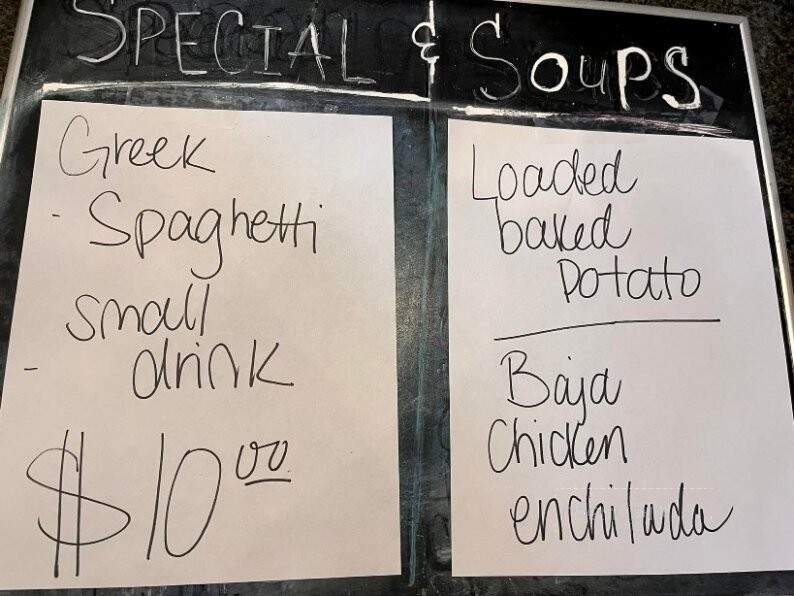 SPECIAL & SOUPS
Greek
- Spaghetti
small
- drink
$10.00
Loaded
baked
Potato
Baja
Chicken
enchilada